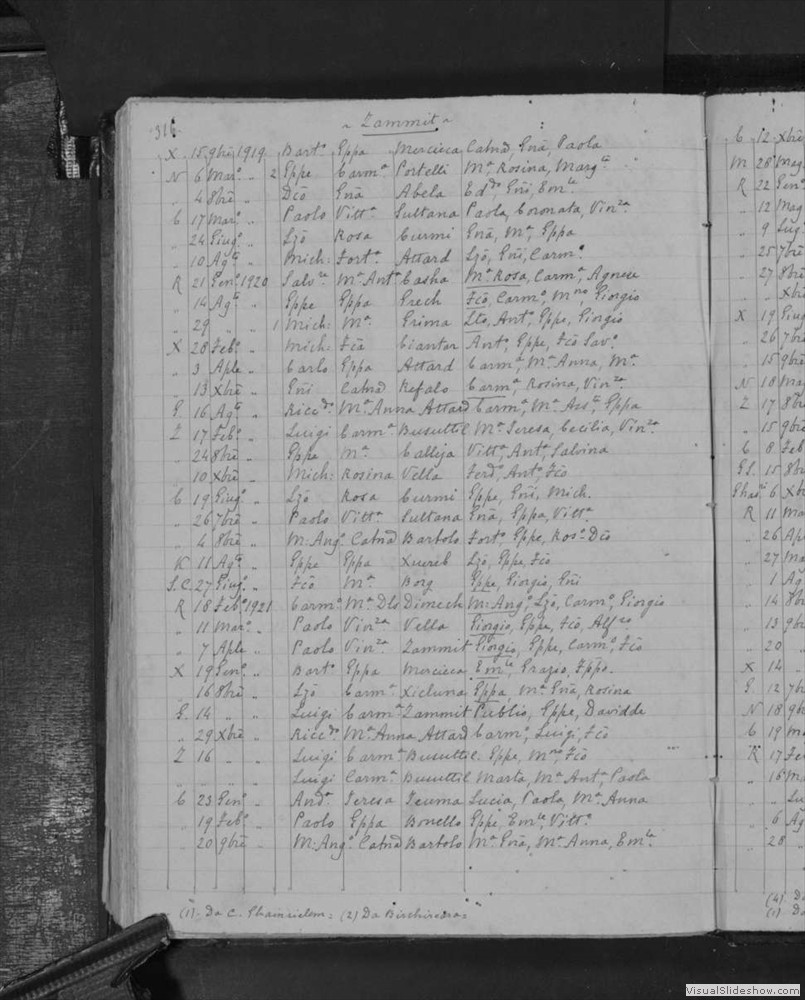 316
~ Zammit ~
X 15 9bre 1919 Barto Eppa Mercieca Catnd, Gña, Paola
N 6 Maro „ 2 Eppe Carma Portelli Ma Rosina, Margta
„ 4 8bre „ Dco Gña Abela Eddo, Gñi, Emle
C 17 Maro „ Paolo Vitta Sultana Paola, Coronata, Vinza
„ 24 Giugo „ Ljo Rosa Curmi Gña, Ma, Eppa
„ 10 Agto „ Mich: Forta Attard Ljo, Gñi, Carmo
R 21 Geno 1920 Salvre Ma Anta Casha Ma Rosa, Carma, Agnese
„ 14 Agto „ Eppe Eppa Grech Fco, Carmo, Mno, Giorgio
„ 29 „ „ 1 Mich: Ma Grima Lto, Anto, Eppe, Giorgio
X 28 Febo „ Mich: Fca Ciantar Anto, Eppe, Fco Savo
„ 3 Aple „ Carlo Eppa Attard Carma, Ma Anna, Ma
„ 13 Xbre „ Gñi Catnd Refalo Carma, Rosina, Vinza
G 16 Agto „ Riccdo Ma Anna Attard Carma, Ma Assta, Eppa
Z 17 Febo „ Luigi Carma Busuttil Ma Teresa, Cecilia, Vinza
„ 24 8bre „ Eppe Ma Calleja Vitta, Anta, Salvina
„ 10 Xbre „ Mich: Rosina Vella Ferdo, Anto, Fco
C 19 Giugo „ Ljo Rosa Curmi Eppe, Gñi, Mich.
„ 26 7bre „ Paolo Vitta Sultana Gña, Eppa, Vitta
„ 4 8bre „ M: Ango Catnd Bartolo Forto, Eppe, Roso Dco
K 11 Agto „ Eppe Eppa Xuereb Ljo, Eppe, Fco
S.C. 27 Giugo „ Fco Ma Borg Eppe, Giorgio, Gñi
R 18 Febo 1921 Carmo Ma Dls Dimech M: Ango, Ljo, Carmo, Giorgio
„ 11 Maro „ Paolo Vinza Vella Giorgio, Eppe, Fco, Alfeo
„ 7 Aple „ Paolo Vinza Zammit Giorgio, Eppe, Carmo, Fco
X 19 Geno „ Barto Eppa Mercieca Emle, Grazio,
„ 16 8bre „ Ljo Carma Xicluna Eppa, Ma Gña, Rosina
G. 14 „ „ Luigi Carma Zammit Publio, Eppe, Davidde
„ 29 Xbre „ Riccdo Ma Anna Attard Carmo, Luigi, Fco
Z 16 „ „ Luigi Carma Busuttil Eppe, Mno, Fco
„ „ „ „ Luigi Carma Busuttil Marta, Ma Anta, Paola
C 23 Geno „ Anda Teresa Teuma Lucia, Paola, Ma Anna
„ 19 Febo „ Paolo Eppa Bonello Eppe, Emle, Vitto
„ 20 9bre „ M: Ango Catnd Bartolo Ma Gña, Ma Anna, Emla
(1). Da C. Ghainsielem: (2) Da
C 12 Xbre
M 28 Mag
R 22 Geno
„ 12 Mag
„ 9 Lug
„ 25 7bre
„ 27 8bre
„ „ Xbre
X 19 Giug
„ 26 7bre
„ 15 9bre
N 18 Ma
Z 17 8br
„ 15 9bre
C 8 Feb
15 8b
6 Xb
R 11 Ma
„ 26 Apl
„ 27 Ma
„ 1 Ag
„ 14 8b
„ 13 9b
„ 20 „
X 14 „
G. 12 7b
N 18 9b
C 19 Ma
R 17 Fe
„ 16 Ma
„ „ Lu
„ 6 Ag
„ 28 „
(4) D
(1) D
VisualSlideshow.com